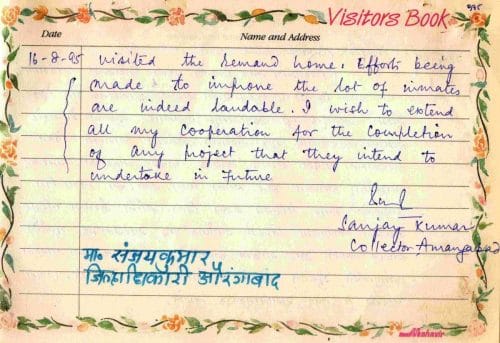 Visitors Book
Date Name and Address
16-8-95 visited the remand home. Efforts being
made to improve the lot of inmates
are indeed laudable. I wish to extend
all my cooperation for the completion
of any project that they intend to
undertake in future
Sanjay Kumar
Collector Aurangabad
मा॰ संजयकुमार
जिल्हाधिकारी औरंगाबाद